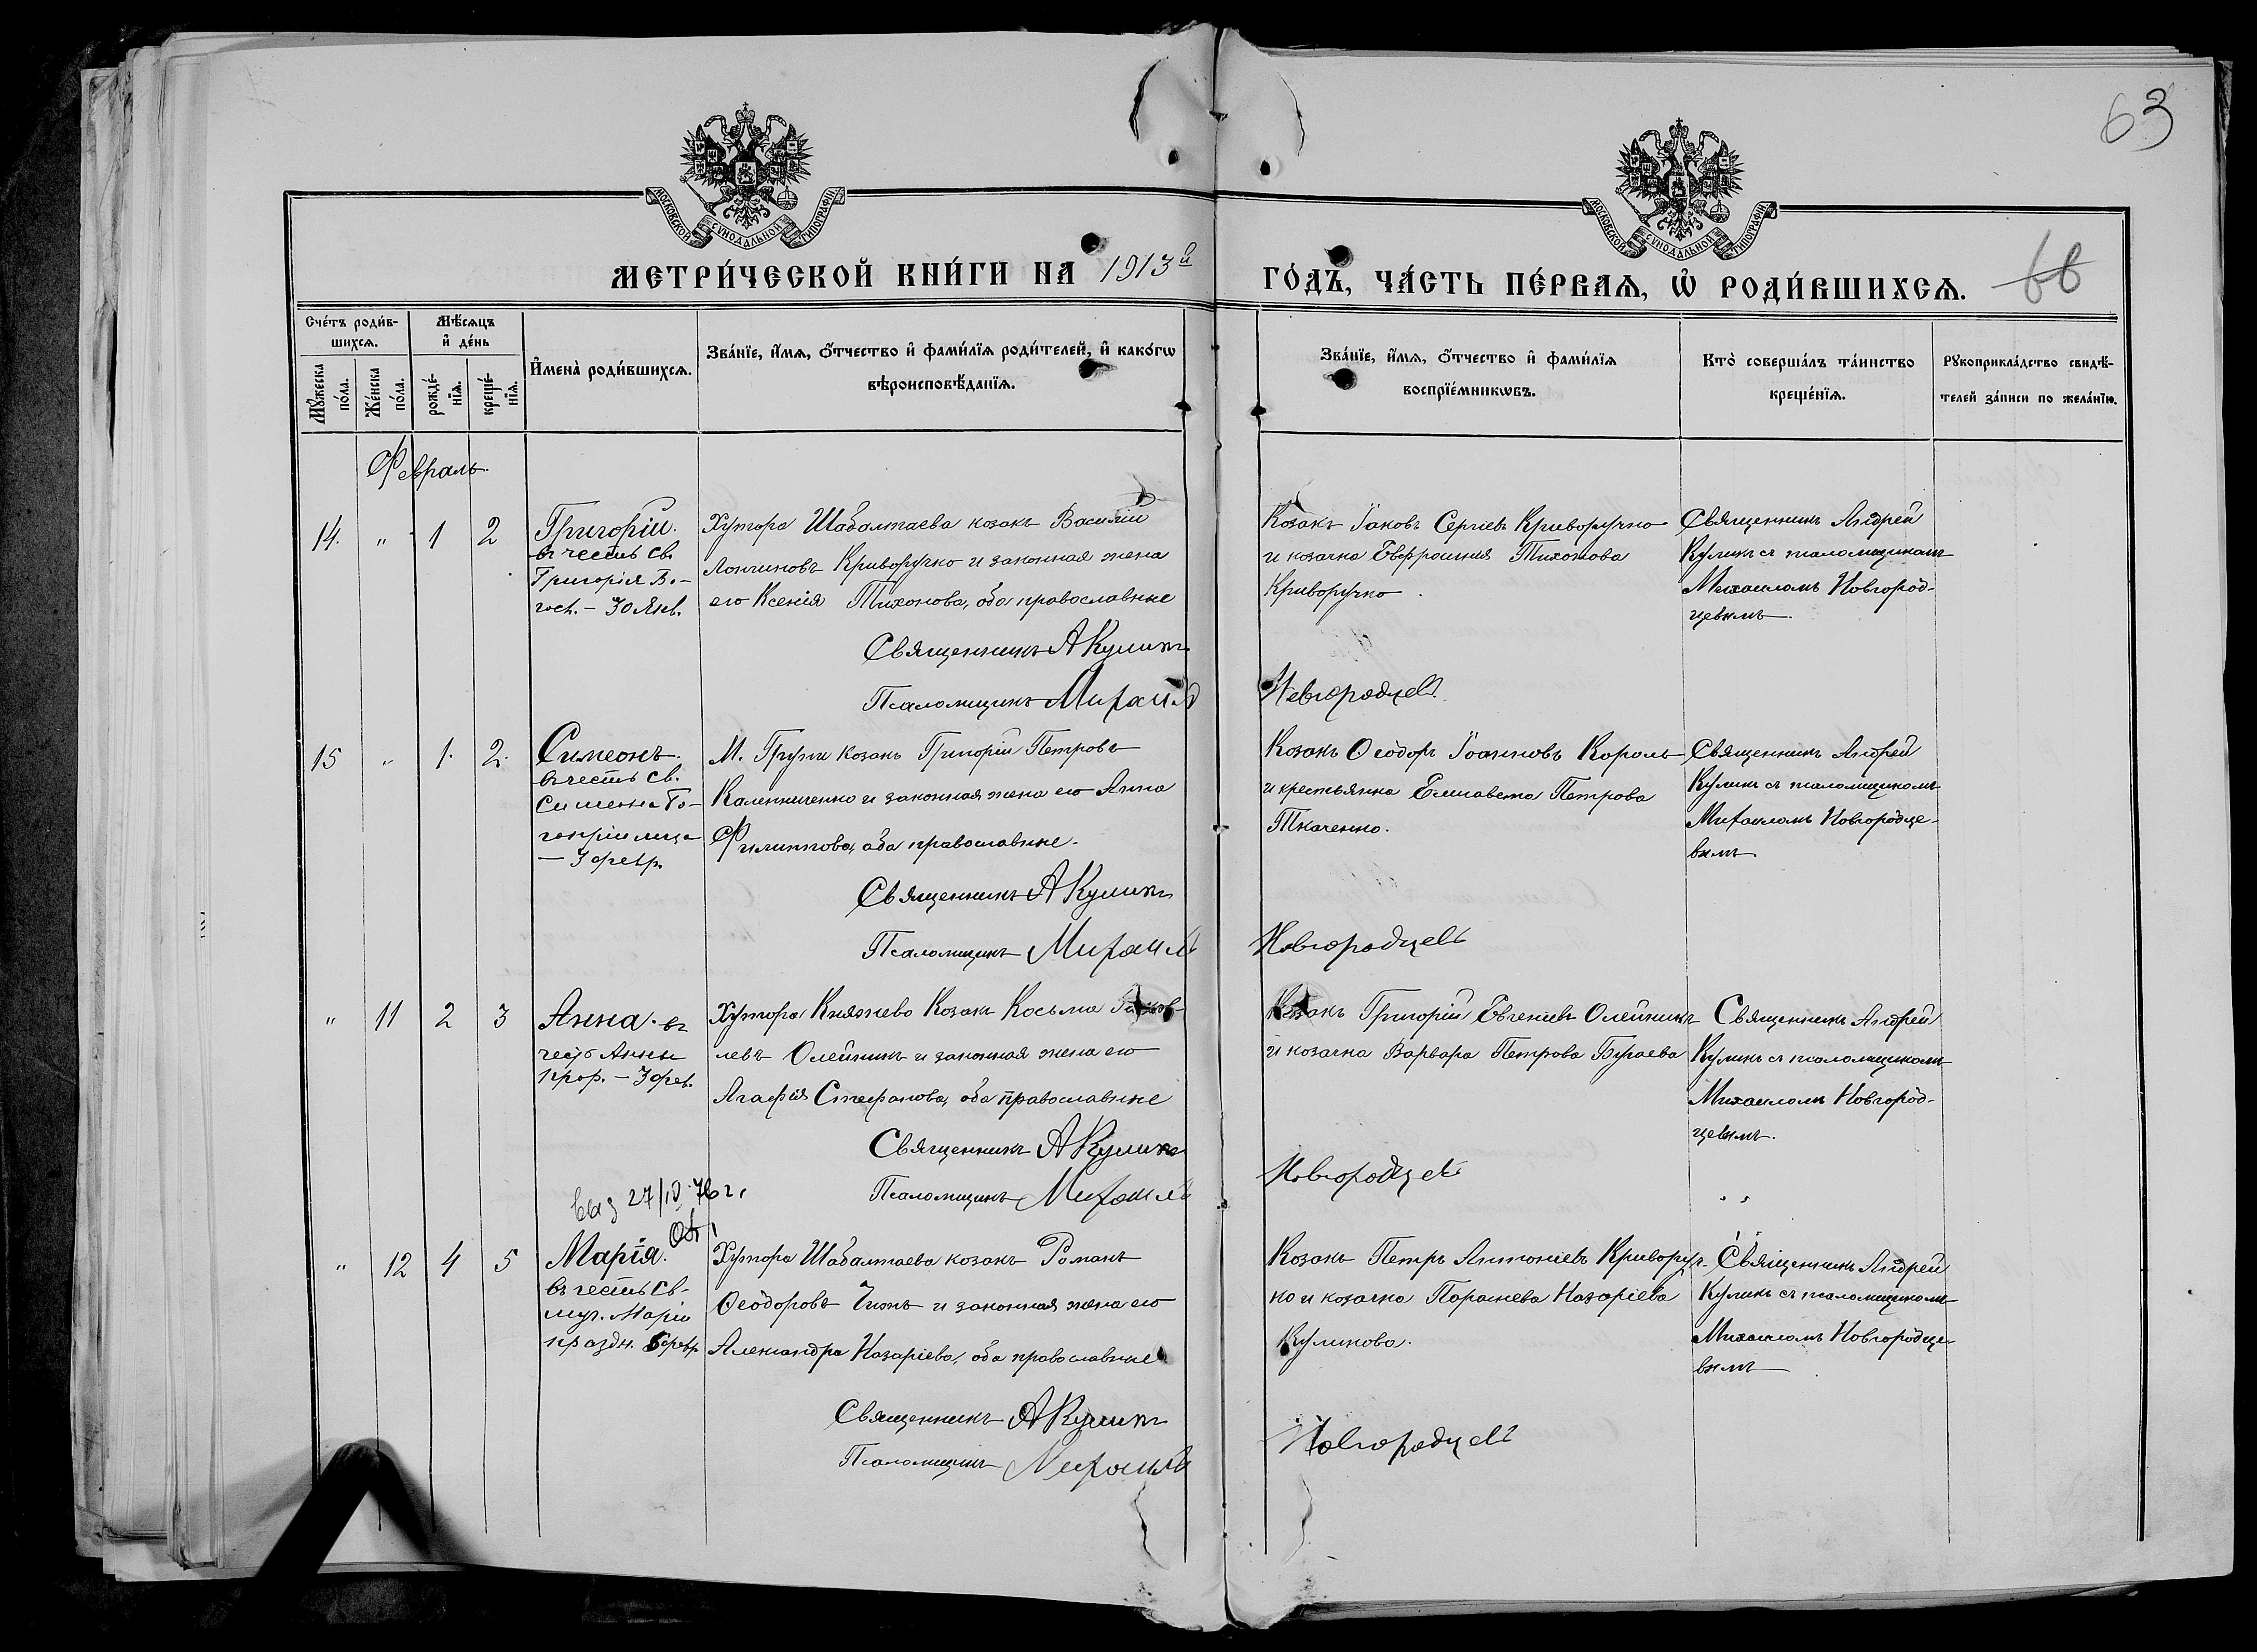 63
МОСКОВСКОЙ СУНОДАЛЬНОЙ ТИПОГРАФІИ
МОСКОВСКОЙ СУНОДАЛЬНОЙ ТИПОГРАФІИ
МЕТРИ́ЧЕСКОЙ КНИ́ГИ НА 1913й
ГО́ДЪ, ЧА́СТЬ ПЕ́РВАѦ, Ѡ҆ РОДИ́ВШИХСѦ.
68
Сче́тъ роди́в-
шихсѧ.
Мꙋ́жеска
по́ла.
Же́нска
по́ла.
Мѣ́сѧцъ
и҆ де́нь
рожде́-
нїѧ.
креще́-
нїѧ.
И҆мена̀ роди́вшихсѧ.
Зва́нїе, и҆́мѧ, ѻ҆́тчество и҆ фами́лїѧ роди́телей, и҆ како́гѡ
вѣроисповѣ́данїѧ.
Зва́нїе, и҆́мѧ, ѻ҆́тчество и҆ фами́лїѧ
воспрїе́мникѡвъ.
Кто̀ соверша́лъ та́инство
креще́нїѧ.
Рꙋкоприкла́дство свидѣ́-
телей за́писи по жела́нїю.
Февраль
14. " 1 2
Григорій.
въ честь св.
Григорія Бо-
госл. – 30 Янв.
Хутора Шабалтаева козакъ Василій
Лонгиновъ Криворучко и законная жена
его Ксенія Тихонова, оба православные
Священникъ АКуликъ
Псаломщикъ Михаилъ
Козакъ Іаковъ Сергіевъ Криворучко
и козачка Евфросинія Тихонова
Криворучко.
Новгородцевъ
Священникъ Андрей
Куликъ съ псаломщикомъ
Михаиломъ Новгород-
цевымъ.
15 " 1. 2.
Симеонъ.
въ честь св.
Симеона Бо-
гопріимца
– 3 февр.
М. Груни козакъ Григорій Петровъ
Калениченко и законная жена его Анна
Филиппова, оба православные.
Священникъ АКуликъ
Псаломщикъ Михаилъ
Козакъ Ѳеодоръ Іоанновъ Король
и крестьянка Елисавета Петрова
Ткаченко.
Новгородцевъ
Священникъ Андрей
Куликъ съ псаломщикомъ
Михаиломъ Новгородце-
вымъ
" 11 2 3
Анна. въ
честь Анны
прор. – 3 фев.
Хутора Княжево Козакъ Косьма
левъ Олейникъ и законная жена его
Агафія Стефанова, оба православные
Священникъ АКуликъ
Псаломщикъ Михаилъ
Козакъ Григорій Евгеніевъ Олейникъ
и козачка Варвара Петрова Бугаева
Новгородцевъ
Священникъ Андрей
Куликъ съ псаломщикомъ
Михаиломъ Новгород-
цевымъ.
выд 27/IV 76 г.
" 12 4 5
Марія.
въ честь св.
муч. Маріи
праздн. 6 февр.
Хутора Шабалтаева козакъ Романъ
Ѳеодоровъ Чионъ и законная жена его
Александра Назаріева, оба православные
Священникъ АКуликъ
Псаломщикъ Михаилъ
Козакъ Петръ Антоніевъ Криворуч-
ко и козачка Параскева Назаріева
Куликова.
Новгородцевъ
Священникъ Андрей
Куликъ съ псаломщикомъ
Михаиломъ Новгородце-
вымъ